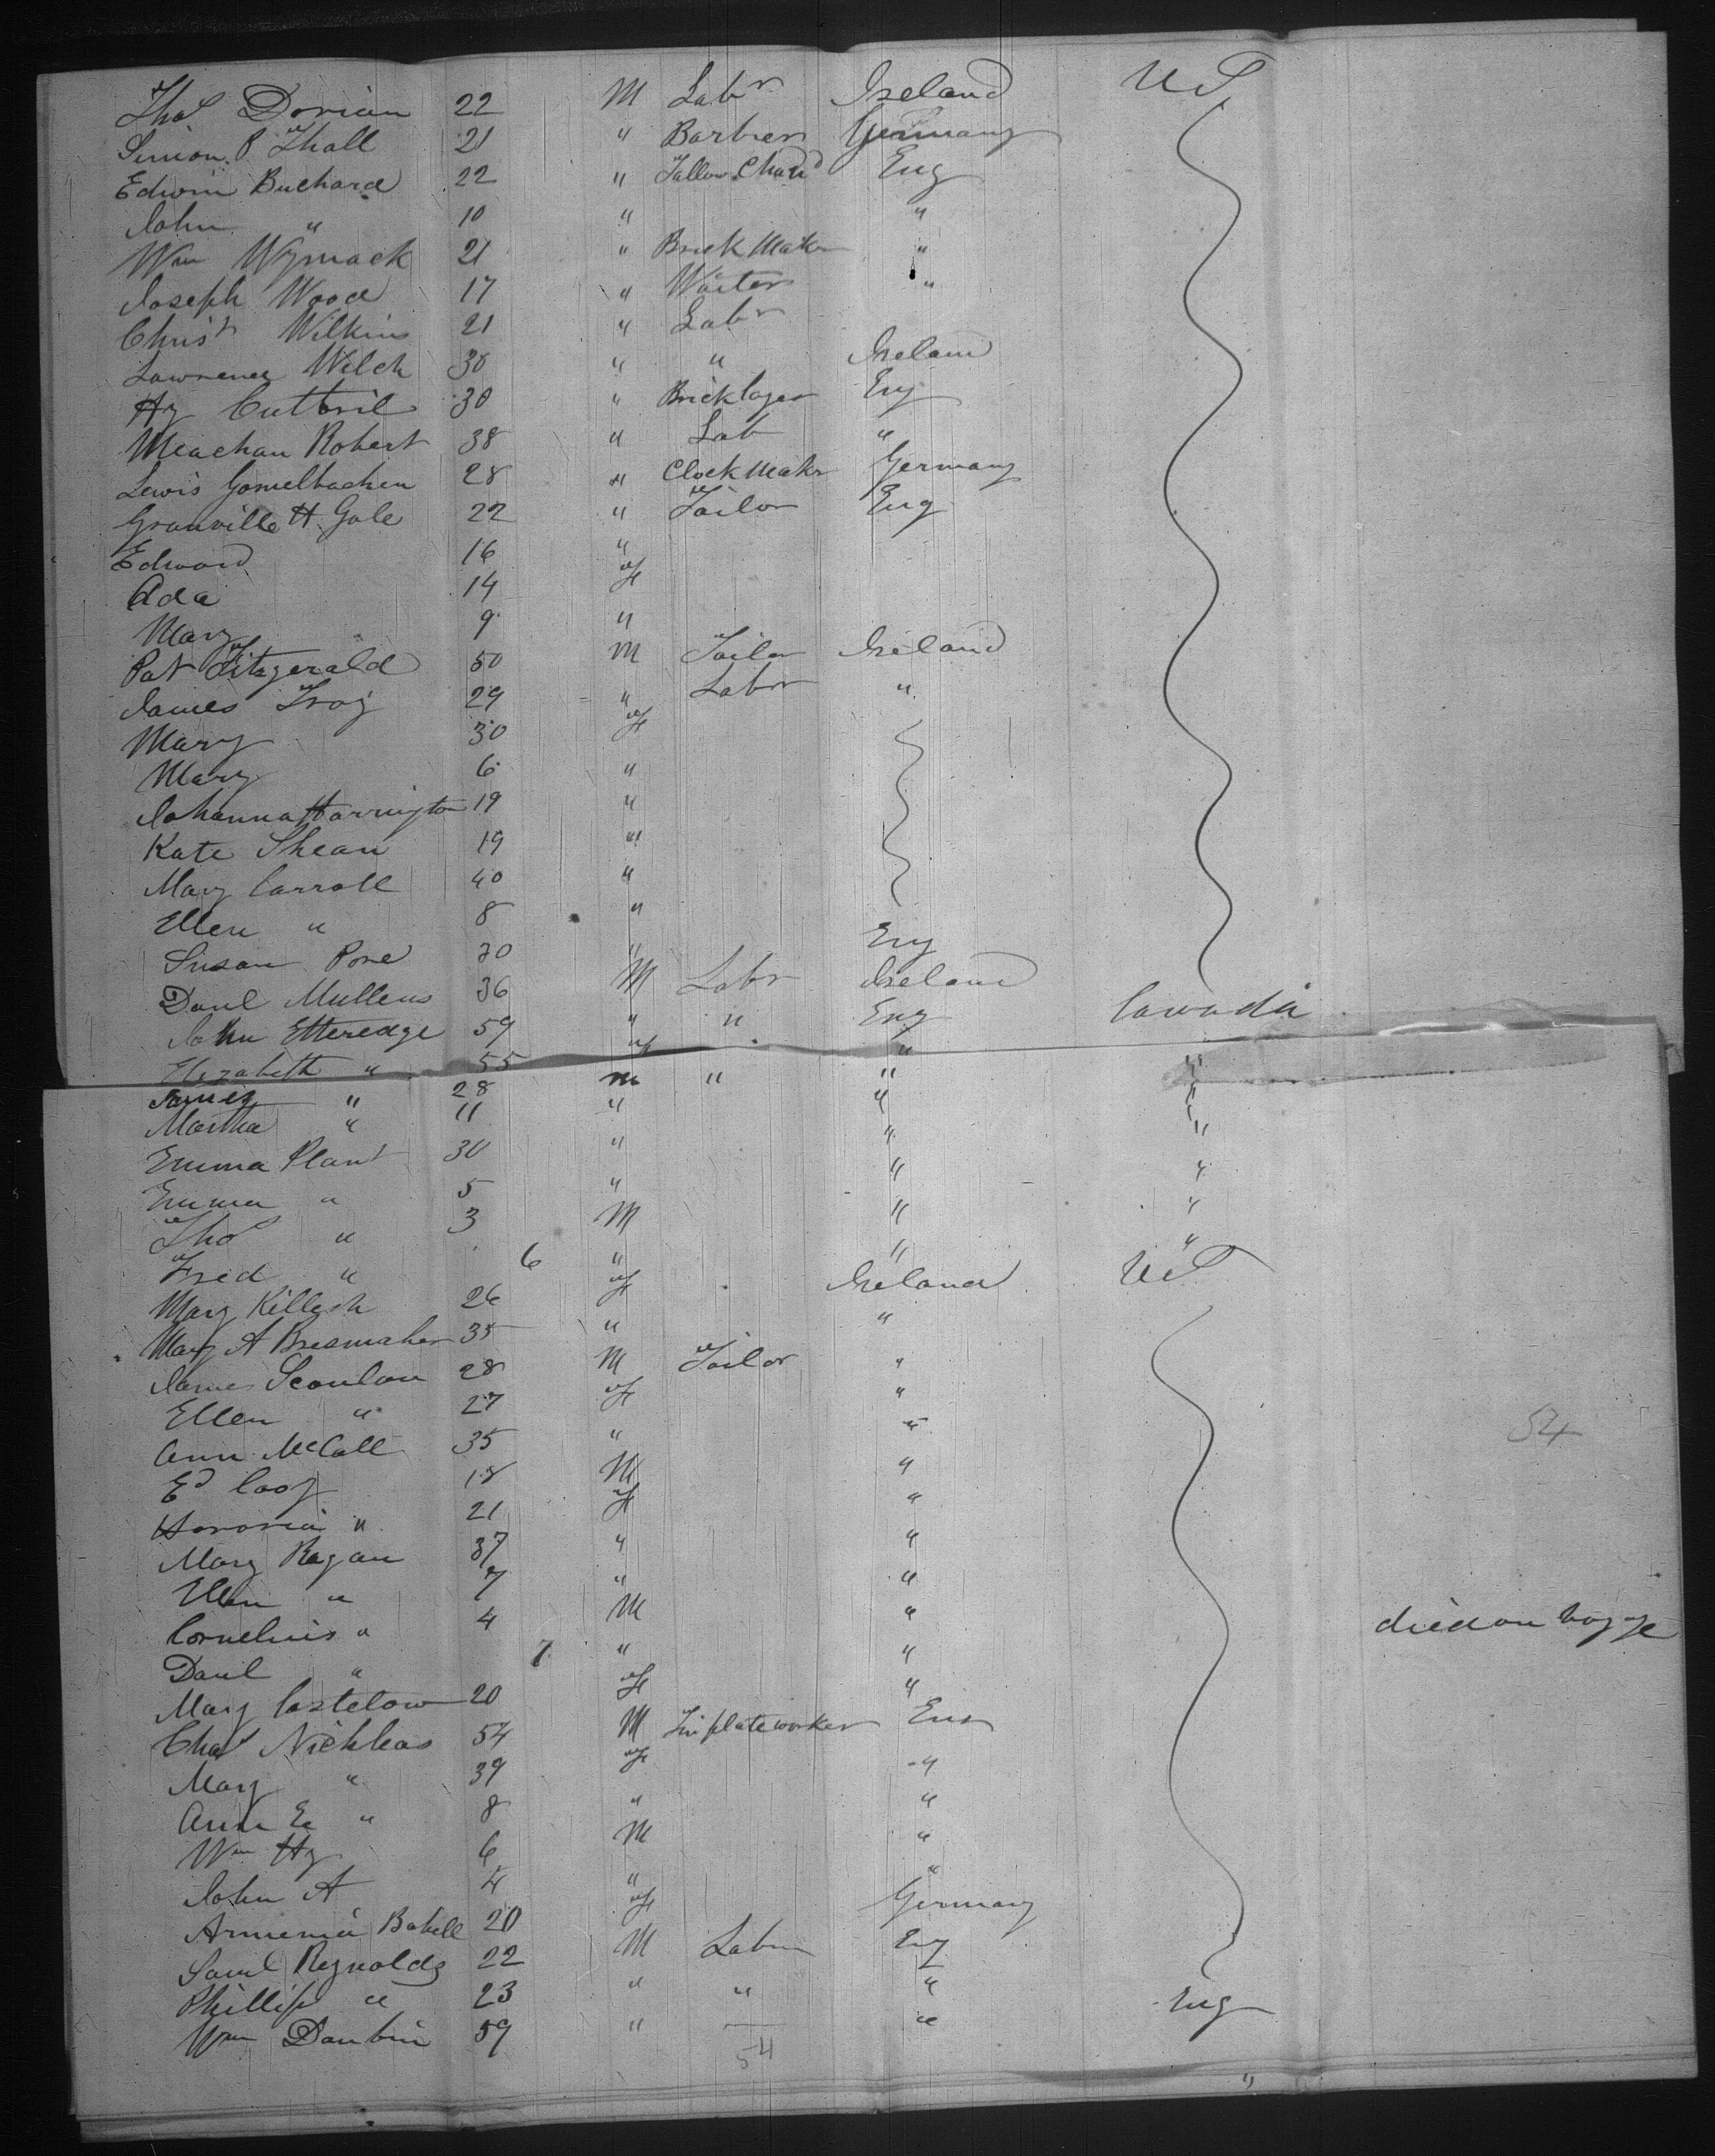 Thos Dorian 22 M Labr Ireland U S
Simon P Thall 21 " Barber Germany
Edwin Buchard 22 " Tallow Chand Eng
John " 10 " "
Wm Wymack 21 " Brick Maker "
Joseph Wood 17 " Waiter "
Christ Wilkins 21 " Labr
Lawrence Welch 30 " " Ireland
Hy Cuttril 30 " Bricklayer Eng
Meachan Robert 38 " Lab "
Lewis Gomelbachen 28 " Clock Makr Germany
Granville H Gale 22 " Tailor Eng
Edward 16 "
Ada 14 F
Mary 9 "
Pat Fitzgerald 50 M Tailor Ireland
James Troy 29 " Labr "
Mary 30 F
Mary 6 "
Johanna Harrington 19 "
Kate Shean 19 "
Mary Carroll 40 "
Ellen " 8 "
Susan Pone 30 " Eng
Danl Mullens 36 M Labr Ireland
John Etteredge 59 " " Eng Canada
Elizabeth " 55 F "
James " 28 M " " "
Martha " 11 " " "
Emma Plant 30 " " "
Emma " 5 " " "
Thos " 3 M " "
Fred " 6 " " "
Mary Killesh 26 F Ireland U S
Mary A Bresmaher 35 " "
James Scanlan 28 M Tailor "
Ellen " 27 F "
Ann McCall 35 " "
Ed Cooy 18 M "
Honoria " 21 F "
Mary Ragan 37 " "
Ellen " 7 " "
Cornelius " 4 M " died on voyage
Danl " 7 " "
Mary Costelow 20 F "
Chas Nicklas 54 M Tin plate worker Eng
Mary " 39 F "
Ann E " 8 " "
Wm Hy 6 M "
John A 4 " "
Armenia Babell 20 F Germany
Saml Reynolds 22 M Labr Eng
Phillip " 23 " " " Eng
Wm Daubin 59 " "
54
54
"